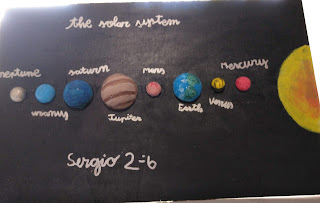 the solar system
neptune
uranus
saturn
Jupiter
mars
Earth
Venus
mercury
Sergio 2-6